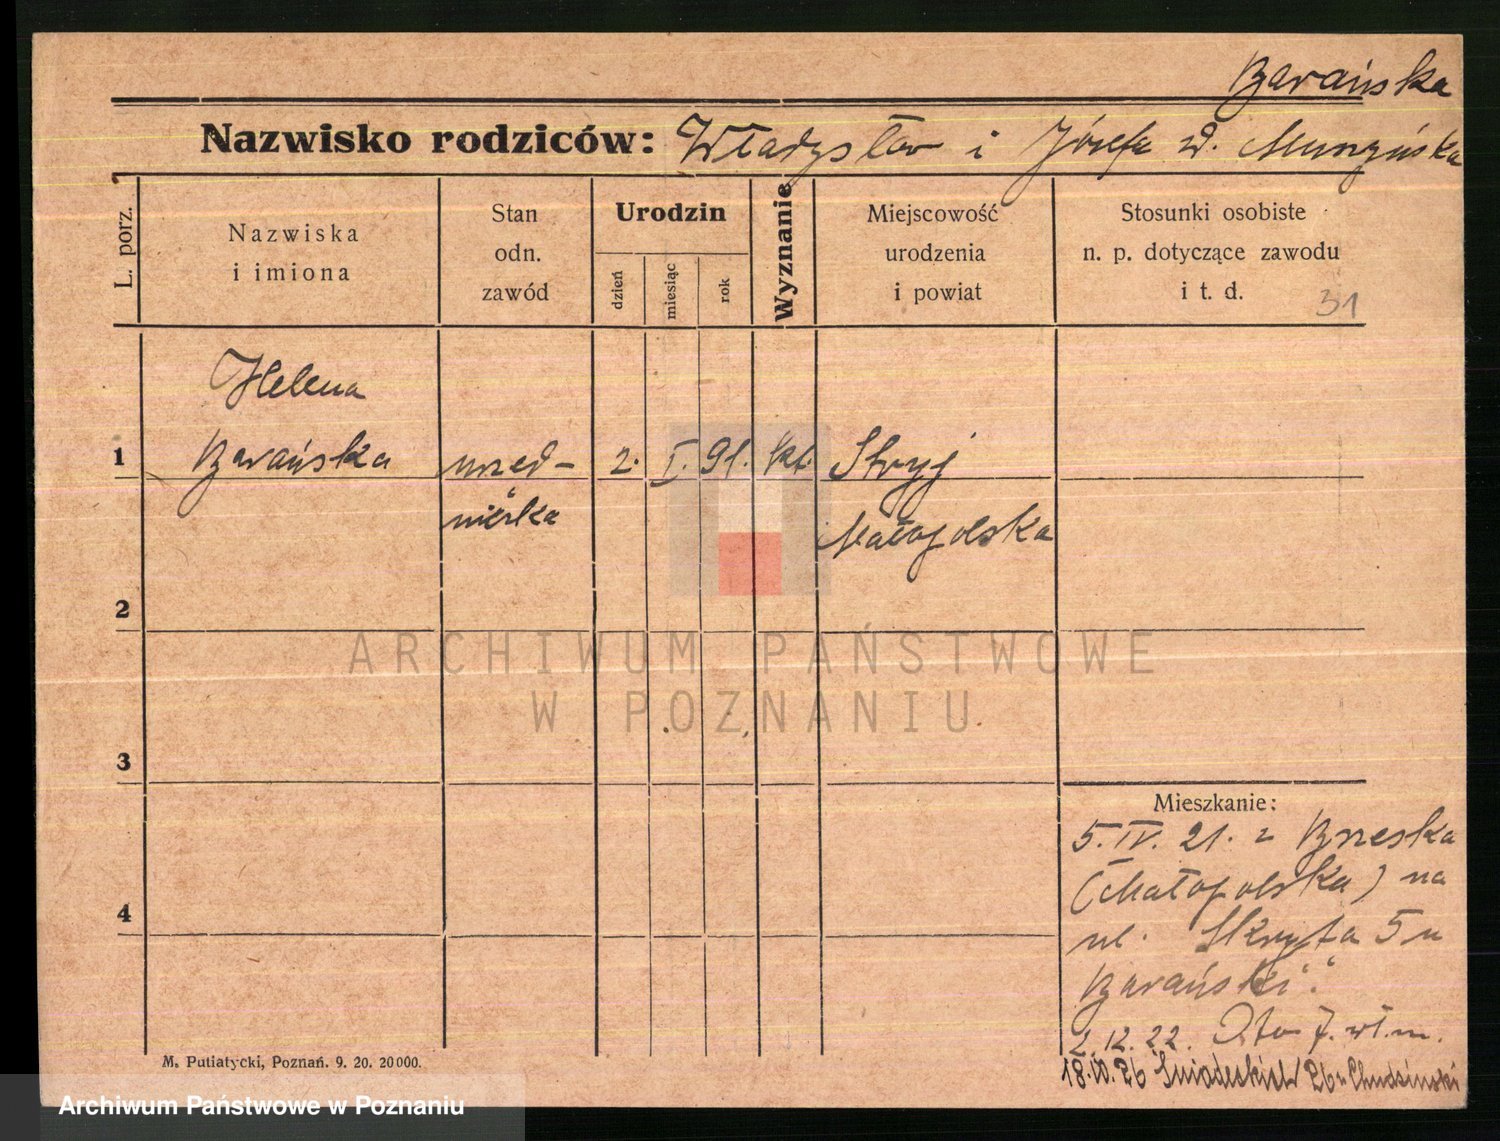 Barańska
Nazwisko rodziców: Władysław i Józefa
L. porz.
Nazwiska
i imiona
Stan
odn.
zawód
Urodzin
dzień
miesiąc
rok
Wyznanie
Miejscowość
urodzenia
i powiat
Stosunki osobiste
n. p. dotyczące zawodu
i t. d.
31
Helena
1 Barańska urzęd- 2. I. 91. kt. Stryj
niczka Małopolska
2
ARCHIWUM PAŃSTWOWE
W POZNANIU
3
Mieszkanie:
5. IV. 21. z Brzeska
(Małopolska) na
4
ul. Skryta 5 u
Barański.
2.12.22. 7. wł. m.
M. Putiatycki, Poznań. 9. 20. 20000.
Śniadeckich 26 u Chudziński
Archiwum Państwowe w Poznaniu